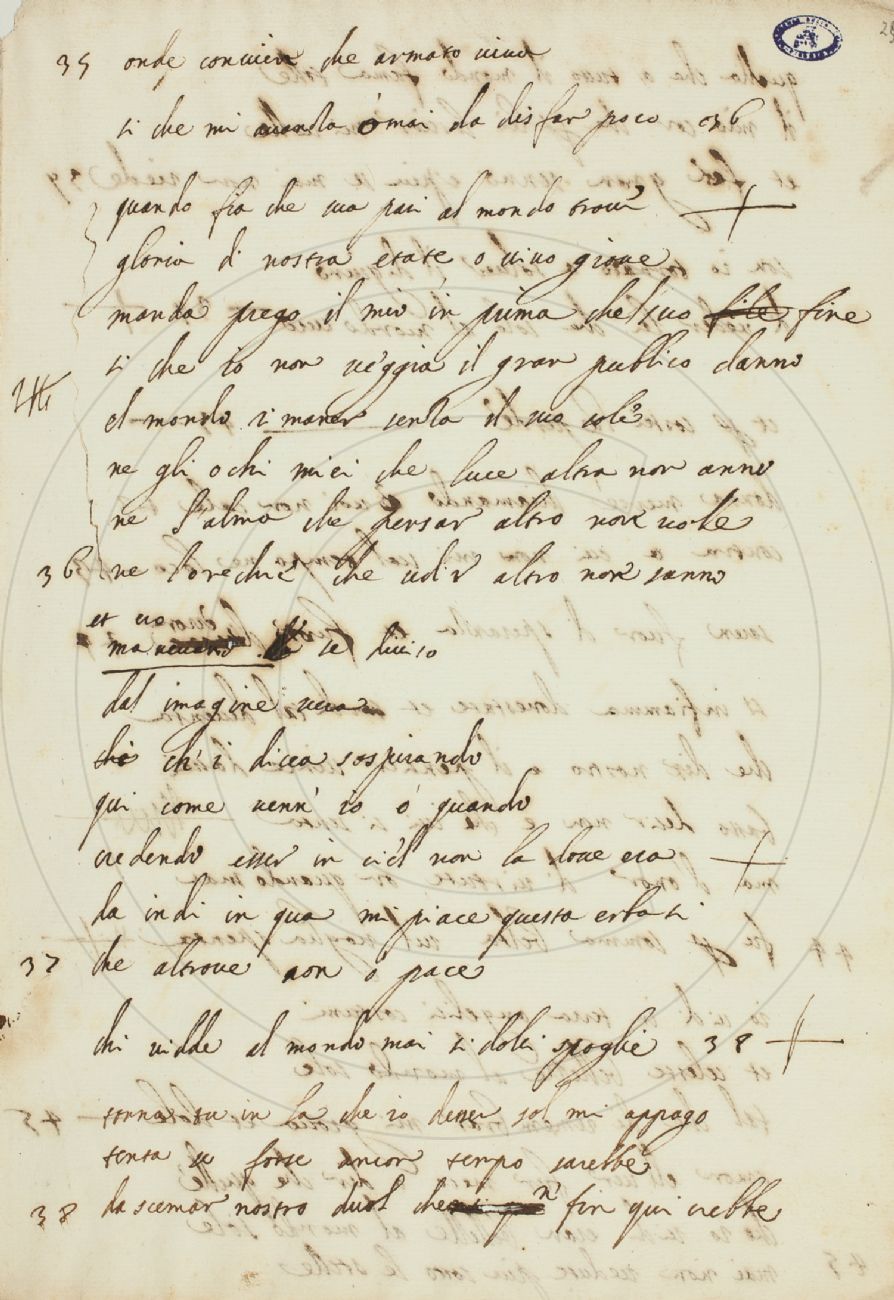 35 onde convien che armato viva
si che mi avanza omai da disfar poco 036
quando fia che sua pari al mondo trovi
gloria di nostra etate o vivo giove
manda prego il mio in prima che'l suo file fine
si che io non veggia il gran publico danno
el mondo rimaner senza il suo sole
ne gli ochi miei che luce altra non anno
ne l'alma che pensar altro non vole
36 ne l'orechie che udir altro non sanno
et cio
ma se diviso
dal imagine vera
ch'i dicea sospirando
qui come venn' io o quando
credendo esser in ciel non la dove era
da indi in qua mi piace questa erba si
37 che altrove non o pace
chi vidde al mondo mai si dolci spoglie 38
torna su in la che io d'esser sol mi appago
tenta se forse ancor tempo sarebbe
38 da scemar nostro duol che n' fin qui crebbe